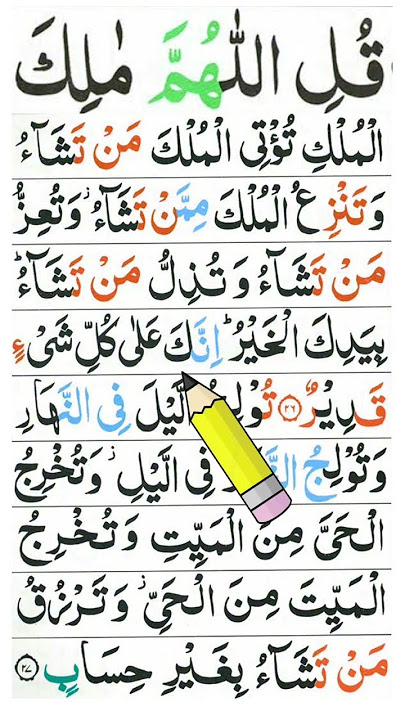 قُلِ اللّٰهُمَّ مٰلِكَ
الْمُلْكِ تُؤْتِی الْمُلْكَ مَنْ تَشَآءُ
وَتَنْزِعُ الْمُلْكَ مِمَّنْ تَشَآءُ ز وَتُعِزُّ
مَنْ تَشَآءُ وَتُذِلُّ مَنْ تَشَآءُ ط
بِیَدِكَ الْخَیْرُ ط اِنَّكَ عَلٰی كُلِّ شَیْءٍ
قَدِیْرٌ ۲۶ الَّیْلَ فِی النَّهَارِ
وَتُوْلِجُ فِی الَّیْلِ ز وَتُخْرِجُ
الْحَیَّ مِنَ الْمَیِّتِ وَتُخْرِجُ
الْمَیِّتَ مِنَ الْحَیِّ ز وَتَرْزُقُ
مَنْ تَشَآءُ بِغَیْرِ حِسَابٍ ۲۷